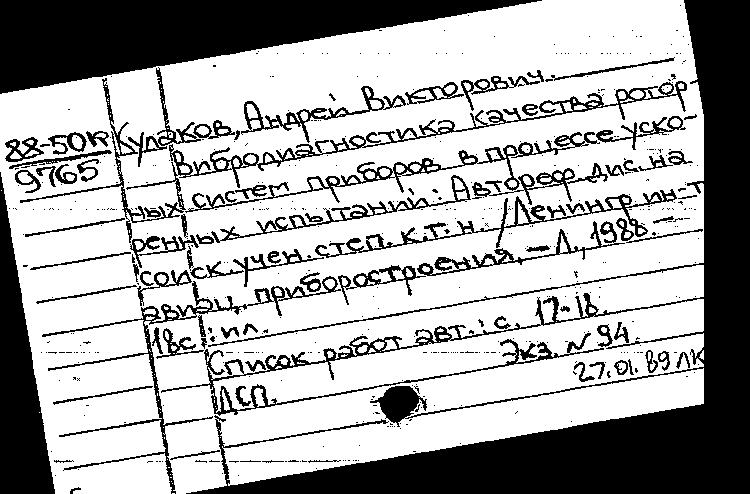 88-50к
9765
Кулаков, Андрей Викторович.
Вибродиагностика качества ротор-
ных систем приборов в процессе уско-
ренных испытаний: Автореф. дис. на
соиск. учен. степ. к.т.н. /Ленингр. ин-т
авиац. приборостроения. — Л., 1988. —
18с.: ил.
Список работ авт.: с. 17-18.
ДСП. Экз. N 94.
27.01.89 ЛК